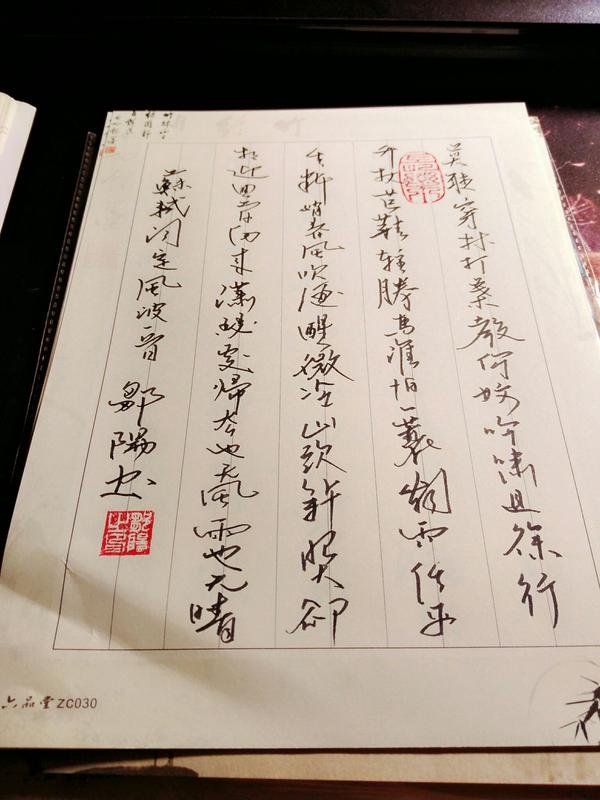 莫聽穿林打葉聲何妨吟嘯且徐行
竹杖芒鞋輕勝馬誰怕一蓑烟雨任平
生料峭春風吹酒醒微冷山頭斜照卻
相迎回首向來瀟瑟處歸去也无風雨也无晴
蘇軾词定風波一首 鄒陽书
六品堂 ZC030